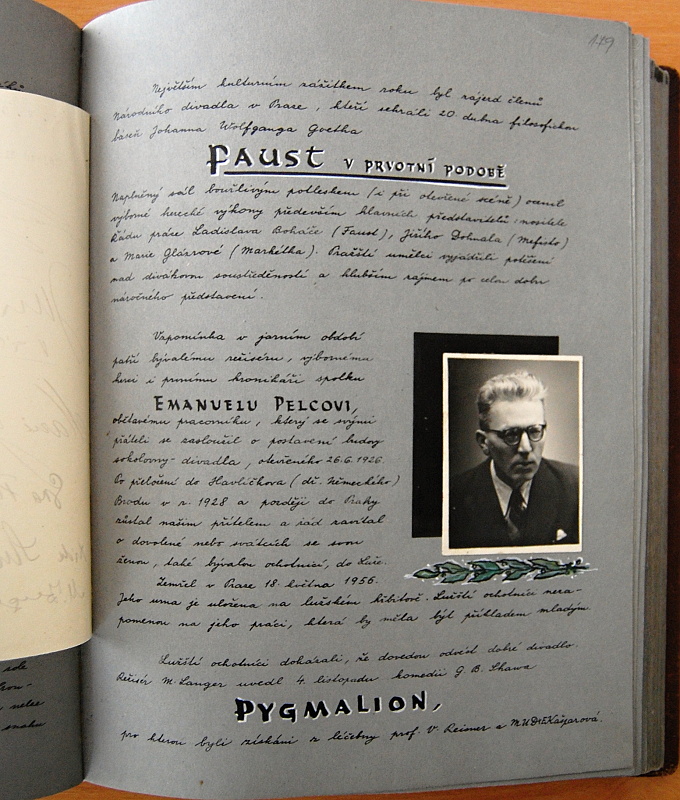 149
Největším kulturním zážitkem roku byl zájezd členů
Národního divadla v Praze, kteří sehráli 20. dubna filosofickou
báseň Johanna Wolfganga Goetha
FAUST V PRVOTNÍ PODOBĚ
Naplněný sál bouřlivým potleskem (i při otevřené scéně) ocenil
výborné herecké výkony především hlavních představitelů: nositele
Řádu práce Ladislava Boháče (Faust), Jiřího Dohnala (Mefisto)
a Marie Glázrové (Markétka). Pražští umělci vyjádřili potěšení
nad diváckou soustředěností a hlubším zájmem po celou dobu
náročného představení.
Vzpomínka v jarním období
patří bývalému režiséru, výbornému
herci i prvnímu kronikáři spolku
EMANUELU PELCOVI,
obětavému pracovníku, který se svými
přáteli se zasloužil o postavení budovy
sokolovny-divadla, otevřeného 26.6.1926.
Po přeložení do Havlíčkova (dř. Německého)
Brodu v r. 1928 a později do Prahy
zůstal naším přítelem a rád zavítal
o dovolené nebo svátcích se svou
ženou, také bývalou ochotnicí, do Luže.
Zemřel v Praze 18. května 1956.
Jeho urna je uložena na lužském hřbitově. Lužští ochotníci neza-
pomenou na jeho práci, která by měla být příkladem mladým.
Lužští ochotníci dokázali, že dovedou odvést dobré divadlo.
Režisér M. Langer uvedl 4. listopadu komedii G. B. Shawa
PYGMALION,
pro kterou byli získáni z léčebny prof. V. Reisner a MUDr E. Kašparová.